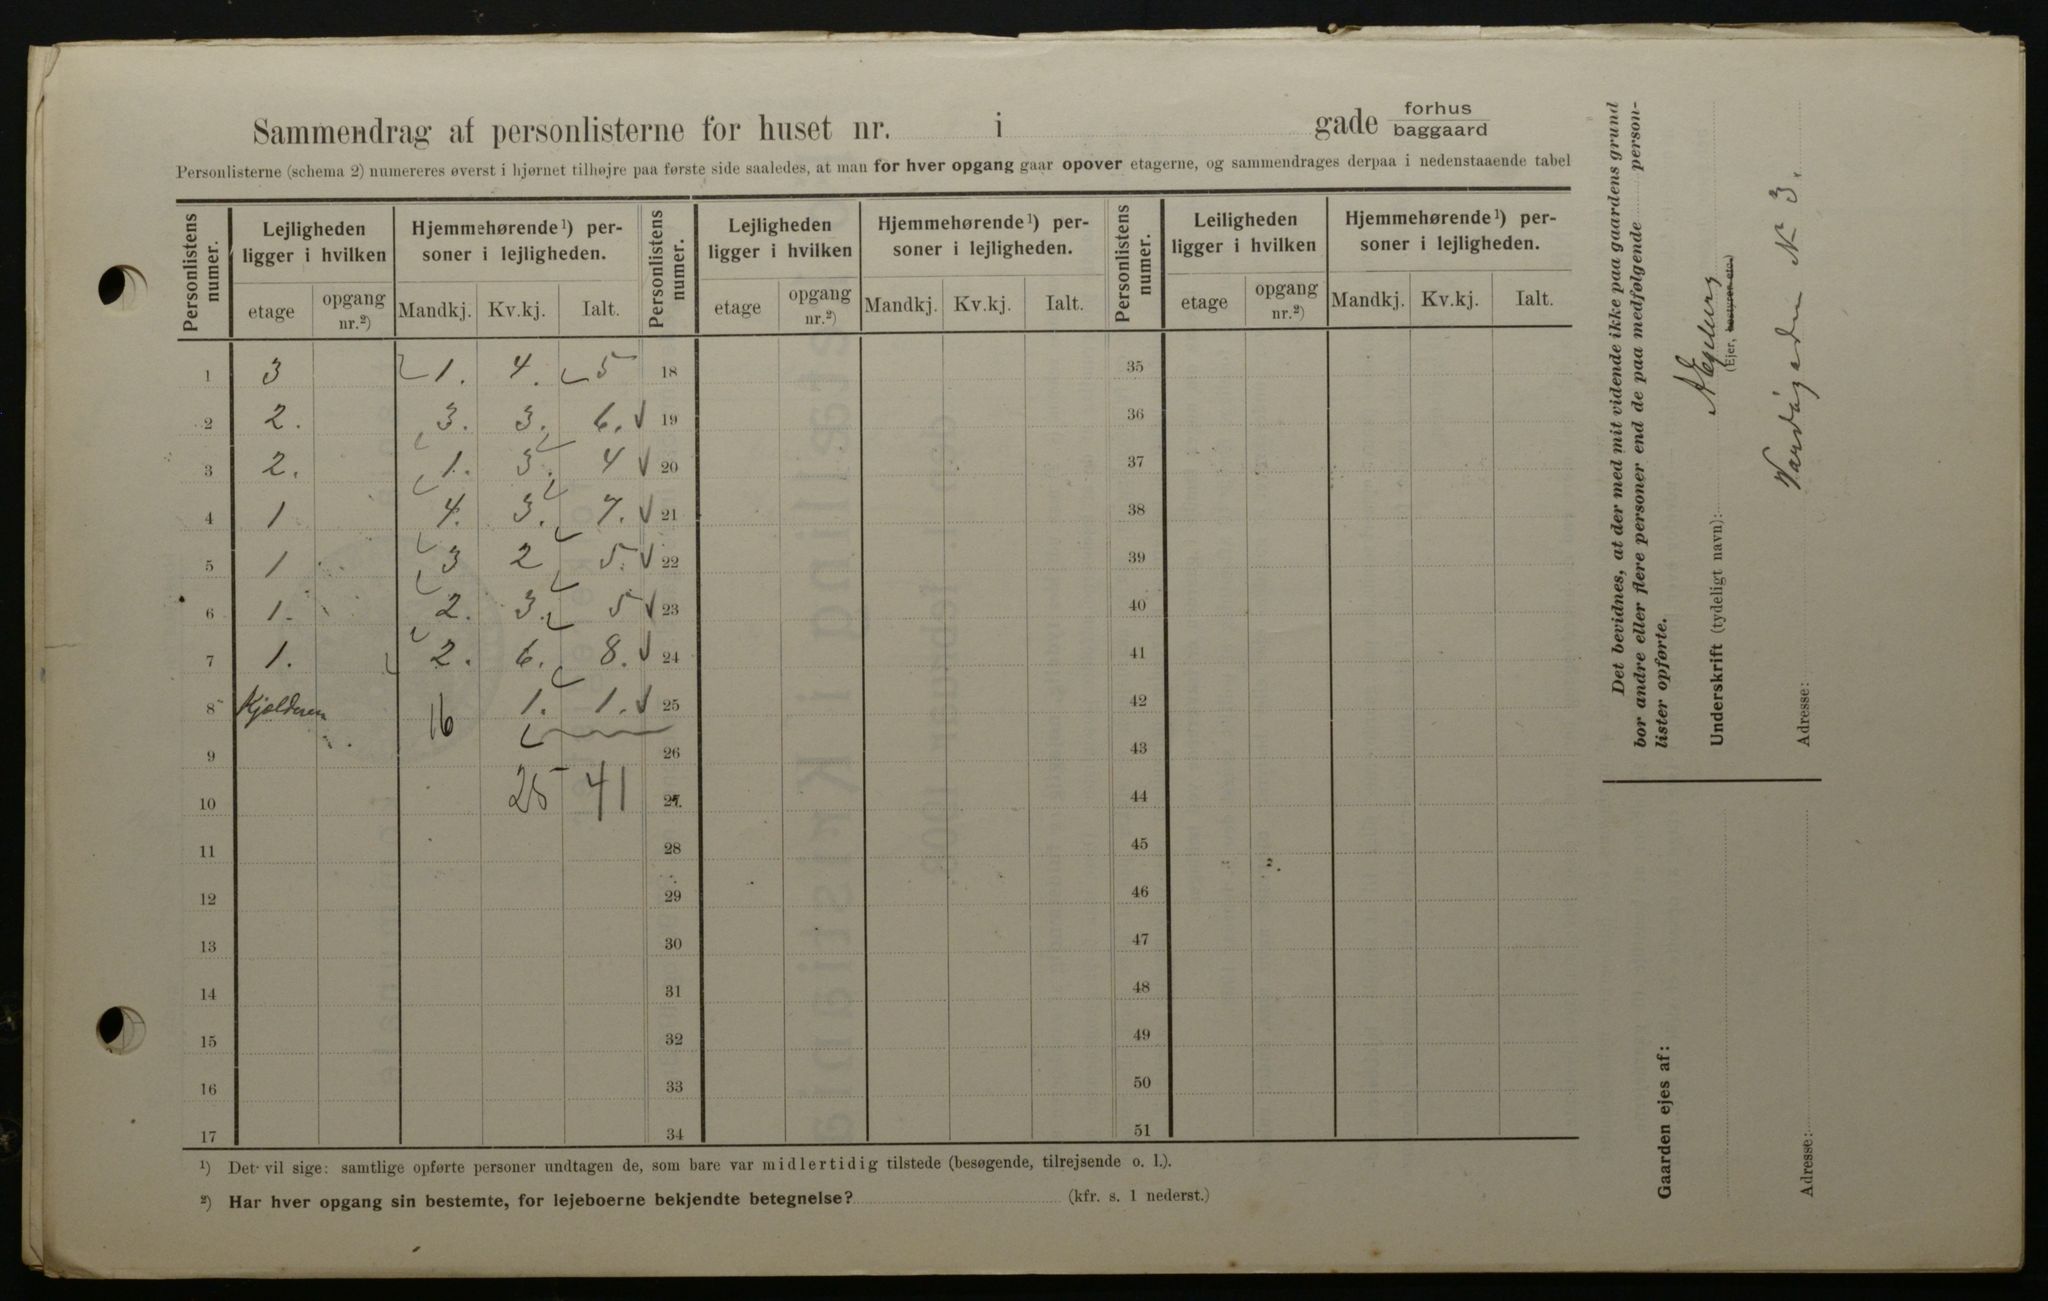 Sammendrag af personlisterne for huset nr. i gade forhus
baggaard
Personlisterne (schema 2) numereres øverst i hjørnet tilhøjre paa første side saaledes, at man for hver opgang gaar opover etagerne, og sammendrages derpaa i nedenstaaende tabel
Personlistens numer. Lejligheden ligger i hvilken Hjemmehørende ¹) personer i lejligheden. Personlistens numer. Lejligheden ligger i hvilken Hjemmehørende ¹) personer i lejligheden. Personlistens numer. Leiligheden ligger i hvilken Hjemmehørende ¹) personer i lejligheden.
etage opgang nr.²) Mandkj. Kv.kj. Ialt. etage opgang nr.²) Mandkj. Kv.kj. Ialt. etage opgang nr.²) Mandkj. Kv.kj. Ialt.
1 3 1. 4. 5 18 35
2 2. 3. 3. 6. 19 36
3 2. 1. 3. 4 20 37
4 1 4. 3. 7. 21 38
5 1 3 2 5. 22 39
6 1. 2. 3. 5 23 40
7 1. 2. 6. 8. 24 41
8 Kjælderen 16 1. 1. 25 42
9 26 43
10 25 41 27 44
11 28 45
12 29 46
13 30 47
14 31 48
15 32 49
16 33 50
17 34 51
¹) Det vil sige: samtlige opførte personer undtagen de, som bare var midlertidig tilstede (besøgende, tilrejsende o. l.).
²) Har hver opgang sin bestemte, for lejeboerne bekjendte betegnelse? (kfr. s. 1 nederst.)
Det bevidnes, at der med mit vidende ikke paa gaardens grund
bor andre eller flere personer end de paa medfølgende person-
lister opførte.
Underskrift (tydeligt navn):
(Ejer, bestyrer etc.)
Adresse: No 3.
Gaarden ejes af:
Adresse: